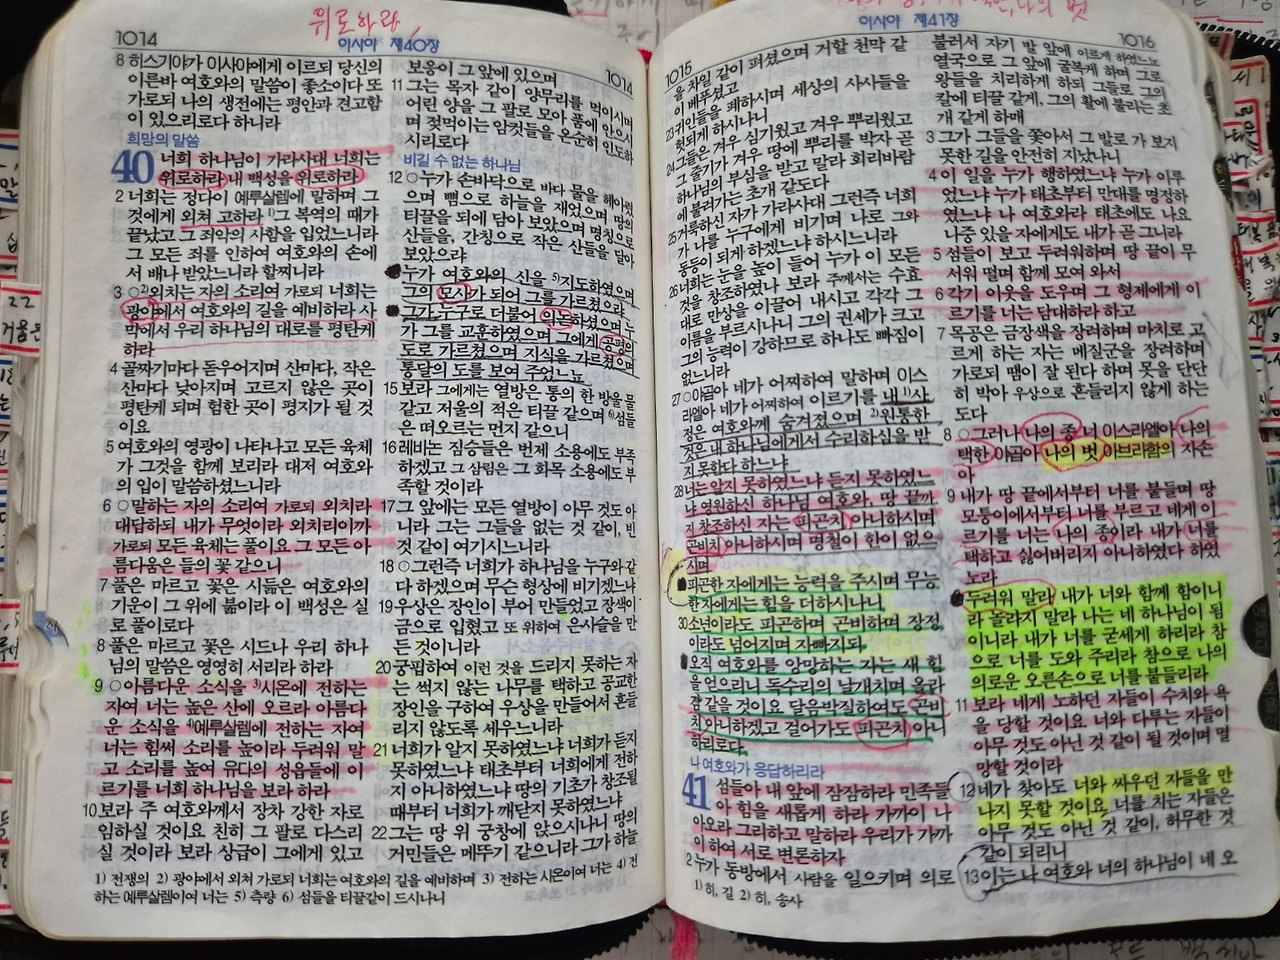 위로하라
1014
이사야 제40장
1014
8 히스기야가 이사야에게 이르되 당신의
이른바 여호와의 말씀이 좋소이다 또
가로되 나의 생전에는 평안과 견고함
이 있으리로다 하니라
희망의 말씀
40 너희 하나님이 가라사대 너희는
위로하라 내 백성을 위로하라
2 너희는 정다이 예루살렘에 말하며 그
것에게 외쳐 고하라 1)그 복역의 때가
끝났고 그 죄악의 사함을 입었느니라
그 모든 죄를 인하여 여호와의 손에
서 배나 받았느니라 할찌니라
3 ○2)외치는 자의 소리여 가로되 너희는
광야에서 여호와의 길을 예비하라 사
막에서 우리 하나님의 대로를 평탄케
하라
4 골짜기마다 돋우어지며 산마다, 작은
산마다 낮아지며 고르지 않은 곳이
평탄케 되며 험한 곳이 평지가 될 것
이요
5 여호와의 영광이 나타나고 모든 육체
가 그것을 함께 보리라 대저 여호와
의 입이 말씀하셨느니라
6 ○말하는 자의 소리여 가로되 외치라
대답하되 내가 무엇이라 외치리이까
가로되 모든 육체는 풀이요 그 모든 아
름다움은 들의 꽃 같으니
7 풀은 마르고 꽃은 시듦은 여호와의
기운이 그 위에 붊이라 이 백성은 실
로 풀이로다
8 풀은 마르고 꽃은 시드나 우리 하나
님의 말씀은 영영히 서리라 하라
9 ○아름다운 소식을 3)시온에 전하는
자여 너는 높은 산에 오르라 아름다
운 소식을 4)예루살렘에 전하는 자여
너는 힘써 소리를 높이라 두려워 말
고 소리를 높여 유다의 성읍들에 이
르기를 너희 하나님을 보라 하라
10 보라 주 여호와께서 장차 강한 자로
임하실 것이요 친히 그 팔로 다스리
실 것이라 보라 상급이 그에게 있고
보응이 그 앞에 있으며
11 그는 목자 같이 양무리를 먹이시며
어린 양을 그 팔로 모아 품에 안으시
며 젖먹이는 암컷들을 온순히 인도하
시리로다
비길 수 없는 하나님
12 ○누가 손바닥으로 바다 물을 헤아렸
으며 뼘으로 하늘을 재었으며 땅의
티끌을 되에 담아 보았으며 명칭으로
산들을, 간칭으로 작은 산들을 달아
보았으랴
누가 여호와의 신을 5)지도하였으며
그의 모사가 되어 그를 가르쳤으랴
그가 누구로 더불어 의논하셨으며 누
가 그를 교훈하였으며 그에게 공평의
도로 가르쳤으며 지식을 가르쳤으며
통달의 도를 보여 주었느뇨
15 보라 그에게는 열방은 통의 한 방울 물
같고 저울의 적은 티끌 같으며 6)섬들
은 떠오르는 먼지 같으니
16 레바논 짐승들은 번제 소용에도 부족
하겠고 그 삼림은 그 화목 소용에도 부
족할 것이라
17 그 앞에는 모든 열방이 아무 것도 아
니라 그는 그들을 없는 것 같이, 빈
것 같이 여기시느니라
18 ○그런즉 너희가 하나님을 누구와 같
다 하겠으며 무슨 형상에 비기겠느냐
19 우상은 장인이 부어 만들었고 장색이
금으로 입혔고 또 위하여 은사슬을 만
든 것이니라
20 궁핍하여 이런 것을 드리지 못하는 자
는 썩지 않는 나무를 택하고 공교한
장인을 구하여 우상을 만들어서 흔들
리지 않도록 세우느니라
21 너희가 알지 못하였느냐 너희가 듣지
못하였느냐 태초부터 너희에게 전하
지 아니하였느냐 땅의 기초가 창조될
때부터 너희가 깨닫지 못하였느냐
22 그는 땅 위 궁창에 앉으시나니 땅의
거민들은 메뚜기 같으니라 그가 하늘
1) 전쟁의 2) 광야에서 외쳐 가로되 너희는 여호와의 길을 예비하며 3) 전하는 시온이여 너는 4) 전
하는 예루살렘이여 너는 5) 측량 6) 섬들을 티끌같이 드시나니
나의 벗
이사야 제41장
1015
1016
을 차일 같이 펴셨으며 거할 천막 같
이 베푸셨고
23 귀인들을 폐하시며 세상의 사사들을
헛되게 하시나니
24 그들은 겨우 심기웠고 겨우 뿌리웠고
그 줄기가 겨우 땅에 뿌리를 박자 곧
하나님의 부심을 받고 말라 회리바람
에 불려가는 초개 같도다
25 거룩하신 자가 가라사대 그런즉 너희
가 나를 누구에게 비기며 나로 그와
동등이 되게 하겠느냐 하시느니라
26 너희는 눈을 높이 들어 누가 이 모든
것을 창조하였나 보라 주께서는 수효
대로 만상을 이끌어 내시고 각각 그
이름을 부르시나니 그의 권세가 크고
그의 능력이 강하므로 하나도 빠짐이
없느니라
27 ○야곱아 네가 어찌하여 말하며 이스
라엘아 네가 어찌하여 이르기를 내 1)사
정은 여호와께 숨겨졌으며 2)원통한
것은 내 하나님에게서 수리하심을 받
지 못한다 하느냐
28 너는 알지 못하였느냐 듣지 못하였느
냐 영원하신 하나님 여호와, 땅 끝까
지 창조하신 자는 피곤치 아니하시며
곤비치 아니하시며 명철이 한이 없으
시며
피곤한 자에게는 능력을 주시며 무능
한 자에게는 힘을 더하시나니
30 소년이라도 피곤하며 곤비하며 장정
이라도 넘어지며 자빠지되
오직 여호와를 앙망하는 자는 새 힘
을 얻으리니 독수리의 날개치며 올라
감 같을 것이요 달음박질하여도 곤비
치 아니하겠고 걸어가도 피곤치 아니
하리로다
나 여호와가 응답하리라
41 섬들아 내 앞에 잠잠하라 민족들
아 힘을 새롭게 하라 가까이 나
아오라 그리하고 말하라 우리가 가까
이 하여 서로 변론하자
2 누가 동방에서 사람을 일으키며 의로
1) 히, 길 2) 히, 송사
불러서 자기 발 앞에 이르게 하였느뇨
열국으로 그 앞에 굴복케 하며 그로
왕들을 치리하게 하되 그들로 그의
칼에 티끌 같게, 그의 활에 불리는 초
개 같게 하매
3 그가 그들을 쫓아서 그 발로 가 보지
못한 길을 안전히 지났나니
4 이 일을 누가 행하였느냐 누가 이루
었느냐 누가 태초부터 만대를 명정하
였느냐 나 여호와라 태초에도 나요
나중 있을 자에게도 내가 곧 그니라
5 섬들이 보고 두려워하며 땅 끝이 무
서워 떨며 함께 모여 와서
6 각기 이웃을 도우며 그 형제에게 이
르기를 너는 담대하라 하고
7 목공은 금장색을 장려하며 마치로 고
르게 하는 자는 메질군을 장려하며
가로되 땜이 잘 된다 하며 못을 단단
히 박아 우상으로 흔들리지 않게 하는
도다
8 ○그러나 나의 종 너 이스라엘아 나의
택한 야곱아 나의 벗 아브라함의 자손
아
9 내가 땅 끝에서부터 너를 붙들며 땅
모퉁이에서부터 너를 부르고 네게 이
르기를 너는 나의 종이라 내가 너를
택하고 싫어버리지 아니하였다 하였
노라
두려워 말라 내가 너와 함께 함이니
라 놀라지 말라 나는 네 하나님이 됨
이니라 내가 너를 굳세게 하리라 참
으로 너를 도와 주리라 참으로 나의
의로운 오른손으로 너를 붙들리라
11 보라 네게 노하던 자들이 수치와 욕
을 당할 것이요 너와 다투는 자들이
아무 것도 아닌 것 같이 될 것이며 멸
망할 것이라
12 네가 찾아도 너와 싸우던 자들을 만
나지 못할 것이요 너를 치는 자들은
아무 것도 아닌 것 같이, 허무한 것
같이 되리니
13 이는 나 여호와 너의 하나님이 네 오
22